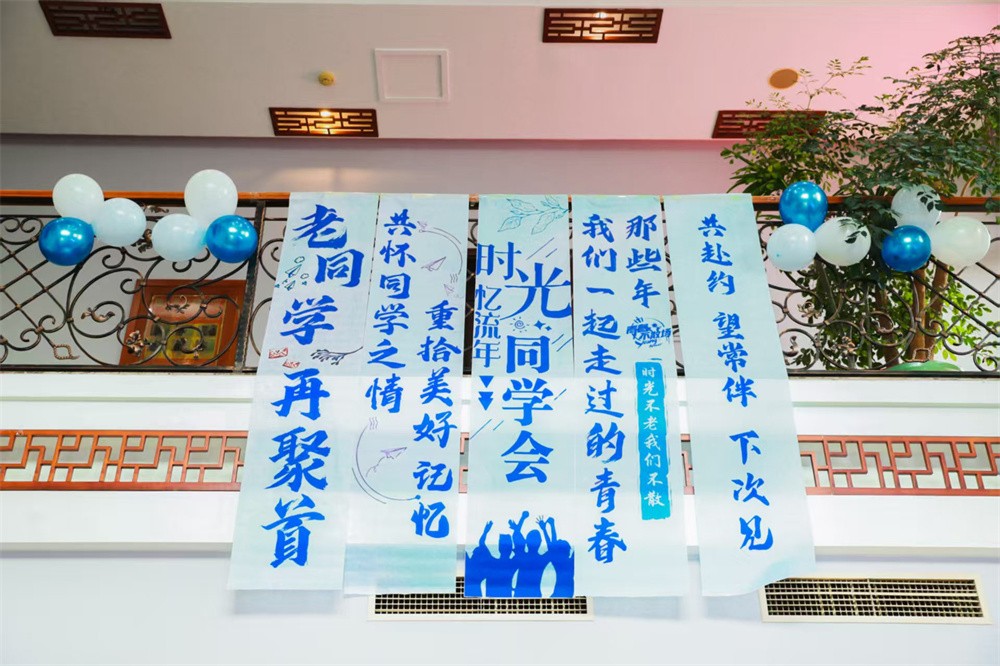 老同学 再聚首
共怀同学之情
重拾美好记忆
时光
忆流年
同学会
那些年
我们一起走过的青春
时光不老我们不散
共赴约 望常伴 下次见